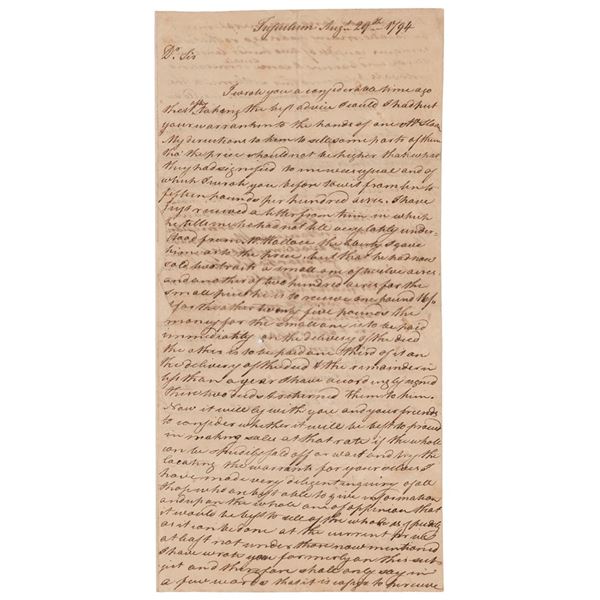 Tusculum Augt 29th 1794
Dr Sir
I wrote you a considerable time ago
that taking the best advice I could I had put
your warrant into the hands of one Mr
My directions to him to sell some parts of them
tho' the price should not be higher than what
they had signified to me was usual and of
which I wrote you before to wit from ten to
fifteen pounds per hundred acres. I have
just received a letter from him in which
he tells me he had not till very lately under-
stood from Mr Wallace the liberty I gave
him as to the price but that he had now
sold two tracts a small one of twelve acres
and another of two hundred acres for the
small piece he is to receive one pound 16/
for the other twenty five pounds the
money for the small one is to be paid
immediately on the delivery of the deed
the other is to be paid one third of it on
the delivery of the deed & the remainder in
less than a year I have accordingly signed
these two deeds & returned them to him.
Now it will ly with you and your friends
to consider whether it will be best to proceed
in making sales at that rate if the whole
can be speedily sold off or wait and try the
locating the warrant for your selves I
have made very diligent inquiry of all
those who are best able to give information
and upon the whole am of opinion that
it would be best to sell off the whole as speedily
as it can be done at the current price
at least not under those now mentioned
I have wrote you formerly on this sub-
ject and therefore shall only say in
a few words that it is easy to perceive